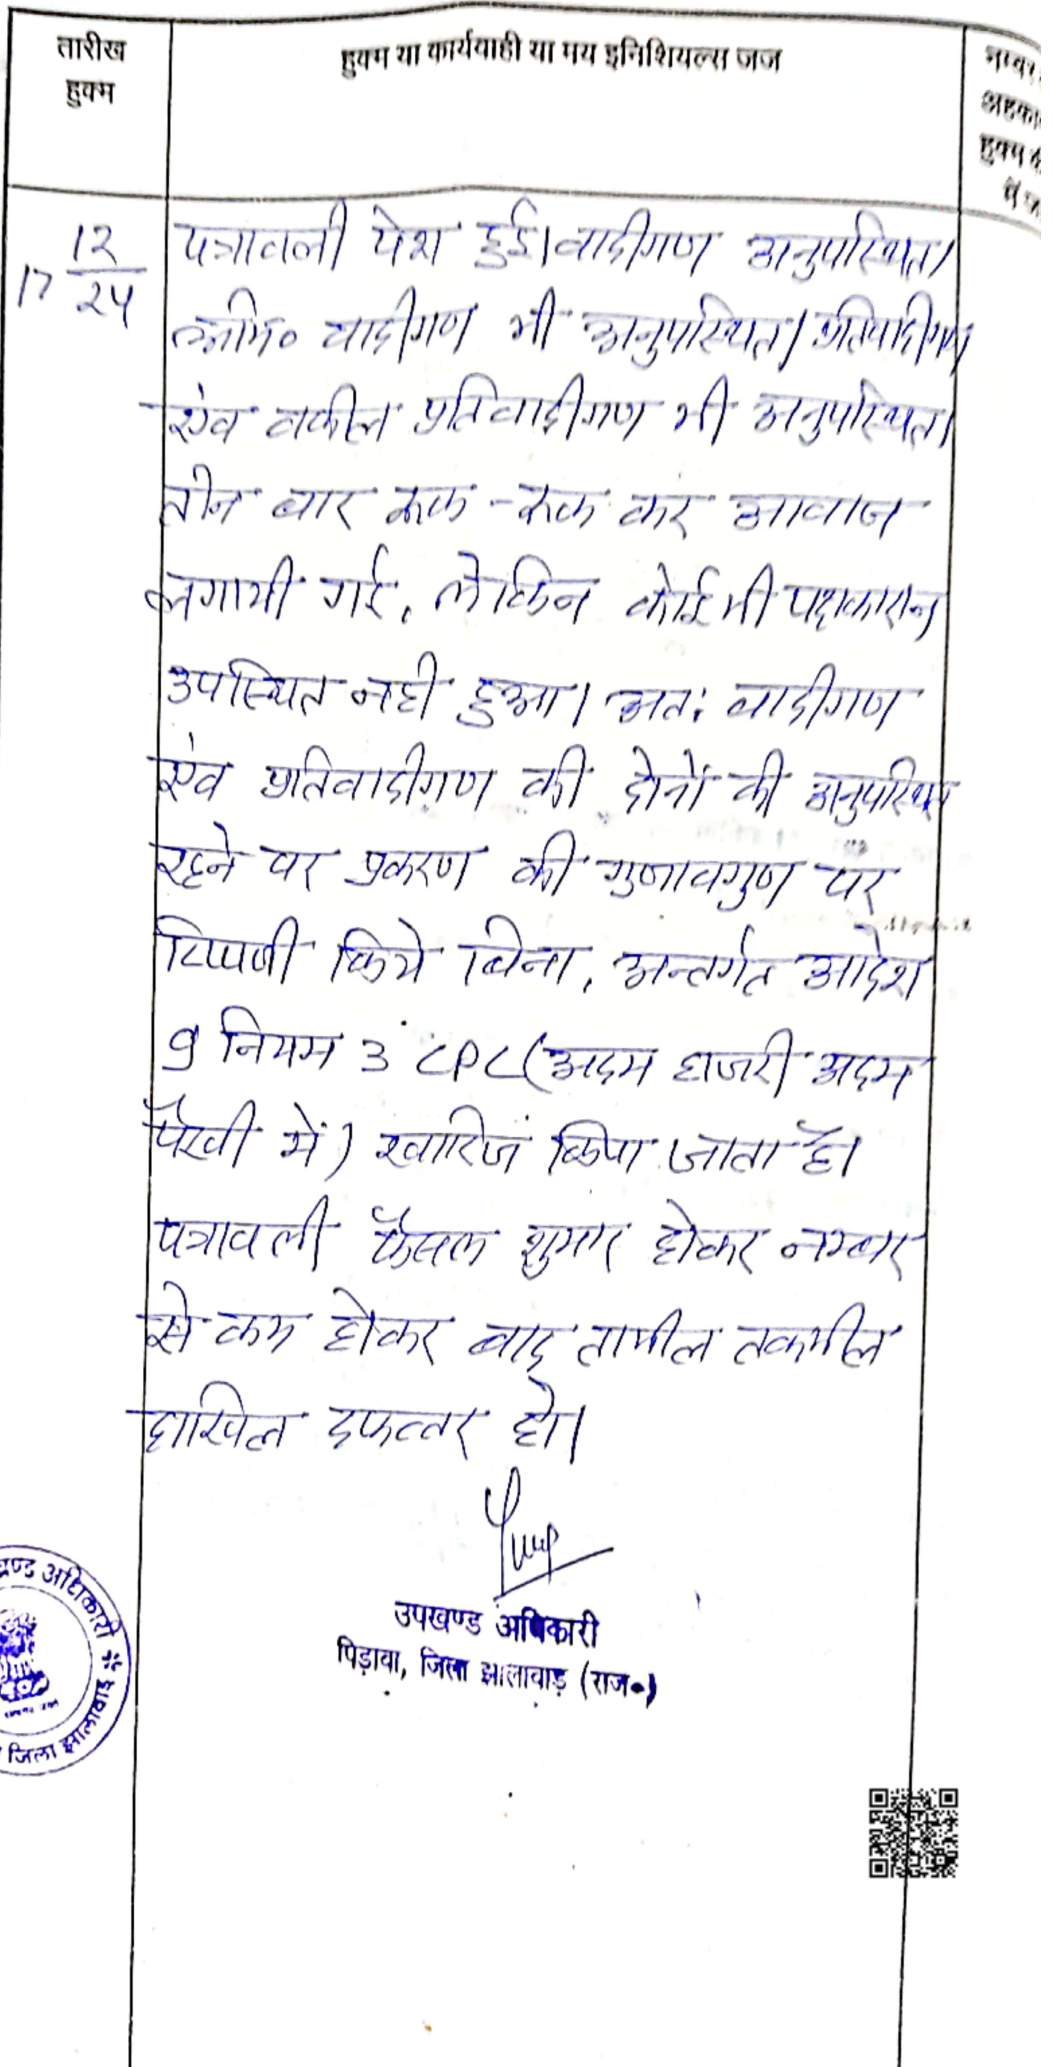 तारीख
हुक्म
हुक्म या कार्यवाही या मय इनिशियल्स जज
नम्बर
हुक्म
12
17 24
पत्रावली पेश हुई। वादीगण अनुपस्थित।
वादीगण भी अनुपस्थित। प्रतिवादीगण
एंव वकील प्रतिवादीगण भी अनुपस्थित।
तीन बार रूक-रूक कर आवाज
लगायी गई, लेकिन कोई भी पक्षकारान
उपस्थित नही हुआ। अतः वादीगण
एंव प्रतिवादीगण की दोनों की अनुपस्थित
रहने पर प्रकरण की गुणावगुण पर
टिप्पणी किये बिना, अन्तर्गत आदेश
9 नियम 3 CPC (अदम हाजरी अदम
पैरवी में) खारिज किया जाता है।
पत्रावली फैसल शुमार होकर नम्बर
से कम होकर बाद तामील तकमील
दाखिल दफ्तर हो।
उपखण्ड अधिकारी
पिड़ावा, जिला झालावाड़ (राज०)
अधिकारी
जिला झालावाड़